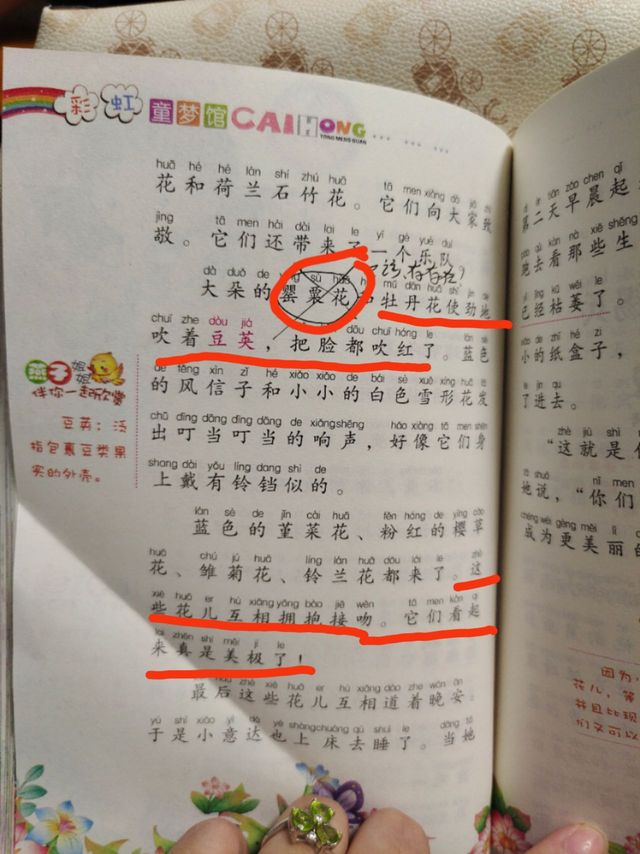 彩虹 童梦馆 CAIHONG
TONG MENG GUAN
huā hé hé lán shí zhú huā tā men xiàng dà jiā zhì
花和荷兰石竹花。它们向大家致
jìng tā men hái dài lái le yí gè yuè duì
敬。它们还带来了一个乐队
dà duǒ de mǔ dān huā shǐ jìn de
大朵的罂粟花和牡丹花使劲地
chuī zhe dòu jiá dōu chuī hóng le
吹着豆荚，把脸都吹红了。蓝色
de fēng xìn zǐ hé xiǎo xiǎo de bái sè xuě xíng huā fā
的风信子和小小的白色雪形花发
chū dīng dāng dīng dāng de xiǎng shēng hǎo xiàng tā men shēn
出叮当叮当的响声，好像它们身
shang dài yǒu líng dang shì de
上戴有铃铛似的。
lán sè de jǐn cài huā fěn hóng de yīng cǎo
蓝色的堇菜花、粉红的樱草
huā chú jú huā líng lán huā dōu lái le zhè
花、雏菊花、铃兰花都来了。这
xiē huā er hù xiāng yōng bào jiē wěn tā men kàn qǐ
些花儿互相拥抱接吻。它们看起
lai zhēn shì měi jí le
来真是美极了！
zhè xiē huā er hù xiāng dào zhe wǎn ān
最后这些花儿互相道着晚安。
yú shì xiǎo yì dá yě shàng chuáng qù shuì le dāng tā
于是小意达也上床去睡了。当她
燕子姐姐
伴你一起欣赏
豆荚：泛
指包裹豆类果
实的外壳。
第二天早晨起
跑去看那些生
已经枯萎了。
小的纸盒子，
了进去。
“这就是
她说，“你们
成为更美丽的
因为，
花儿，等
并且比现
们又可以